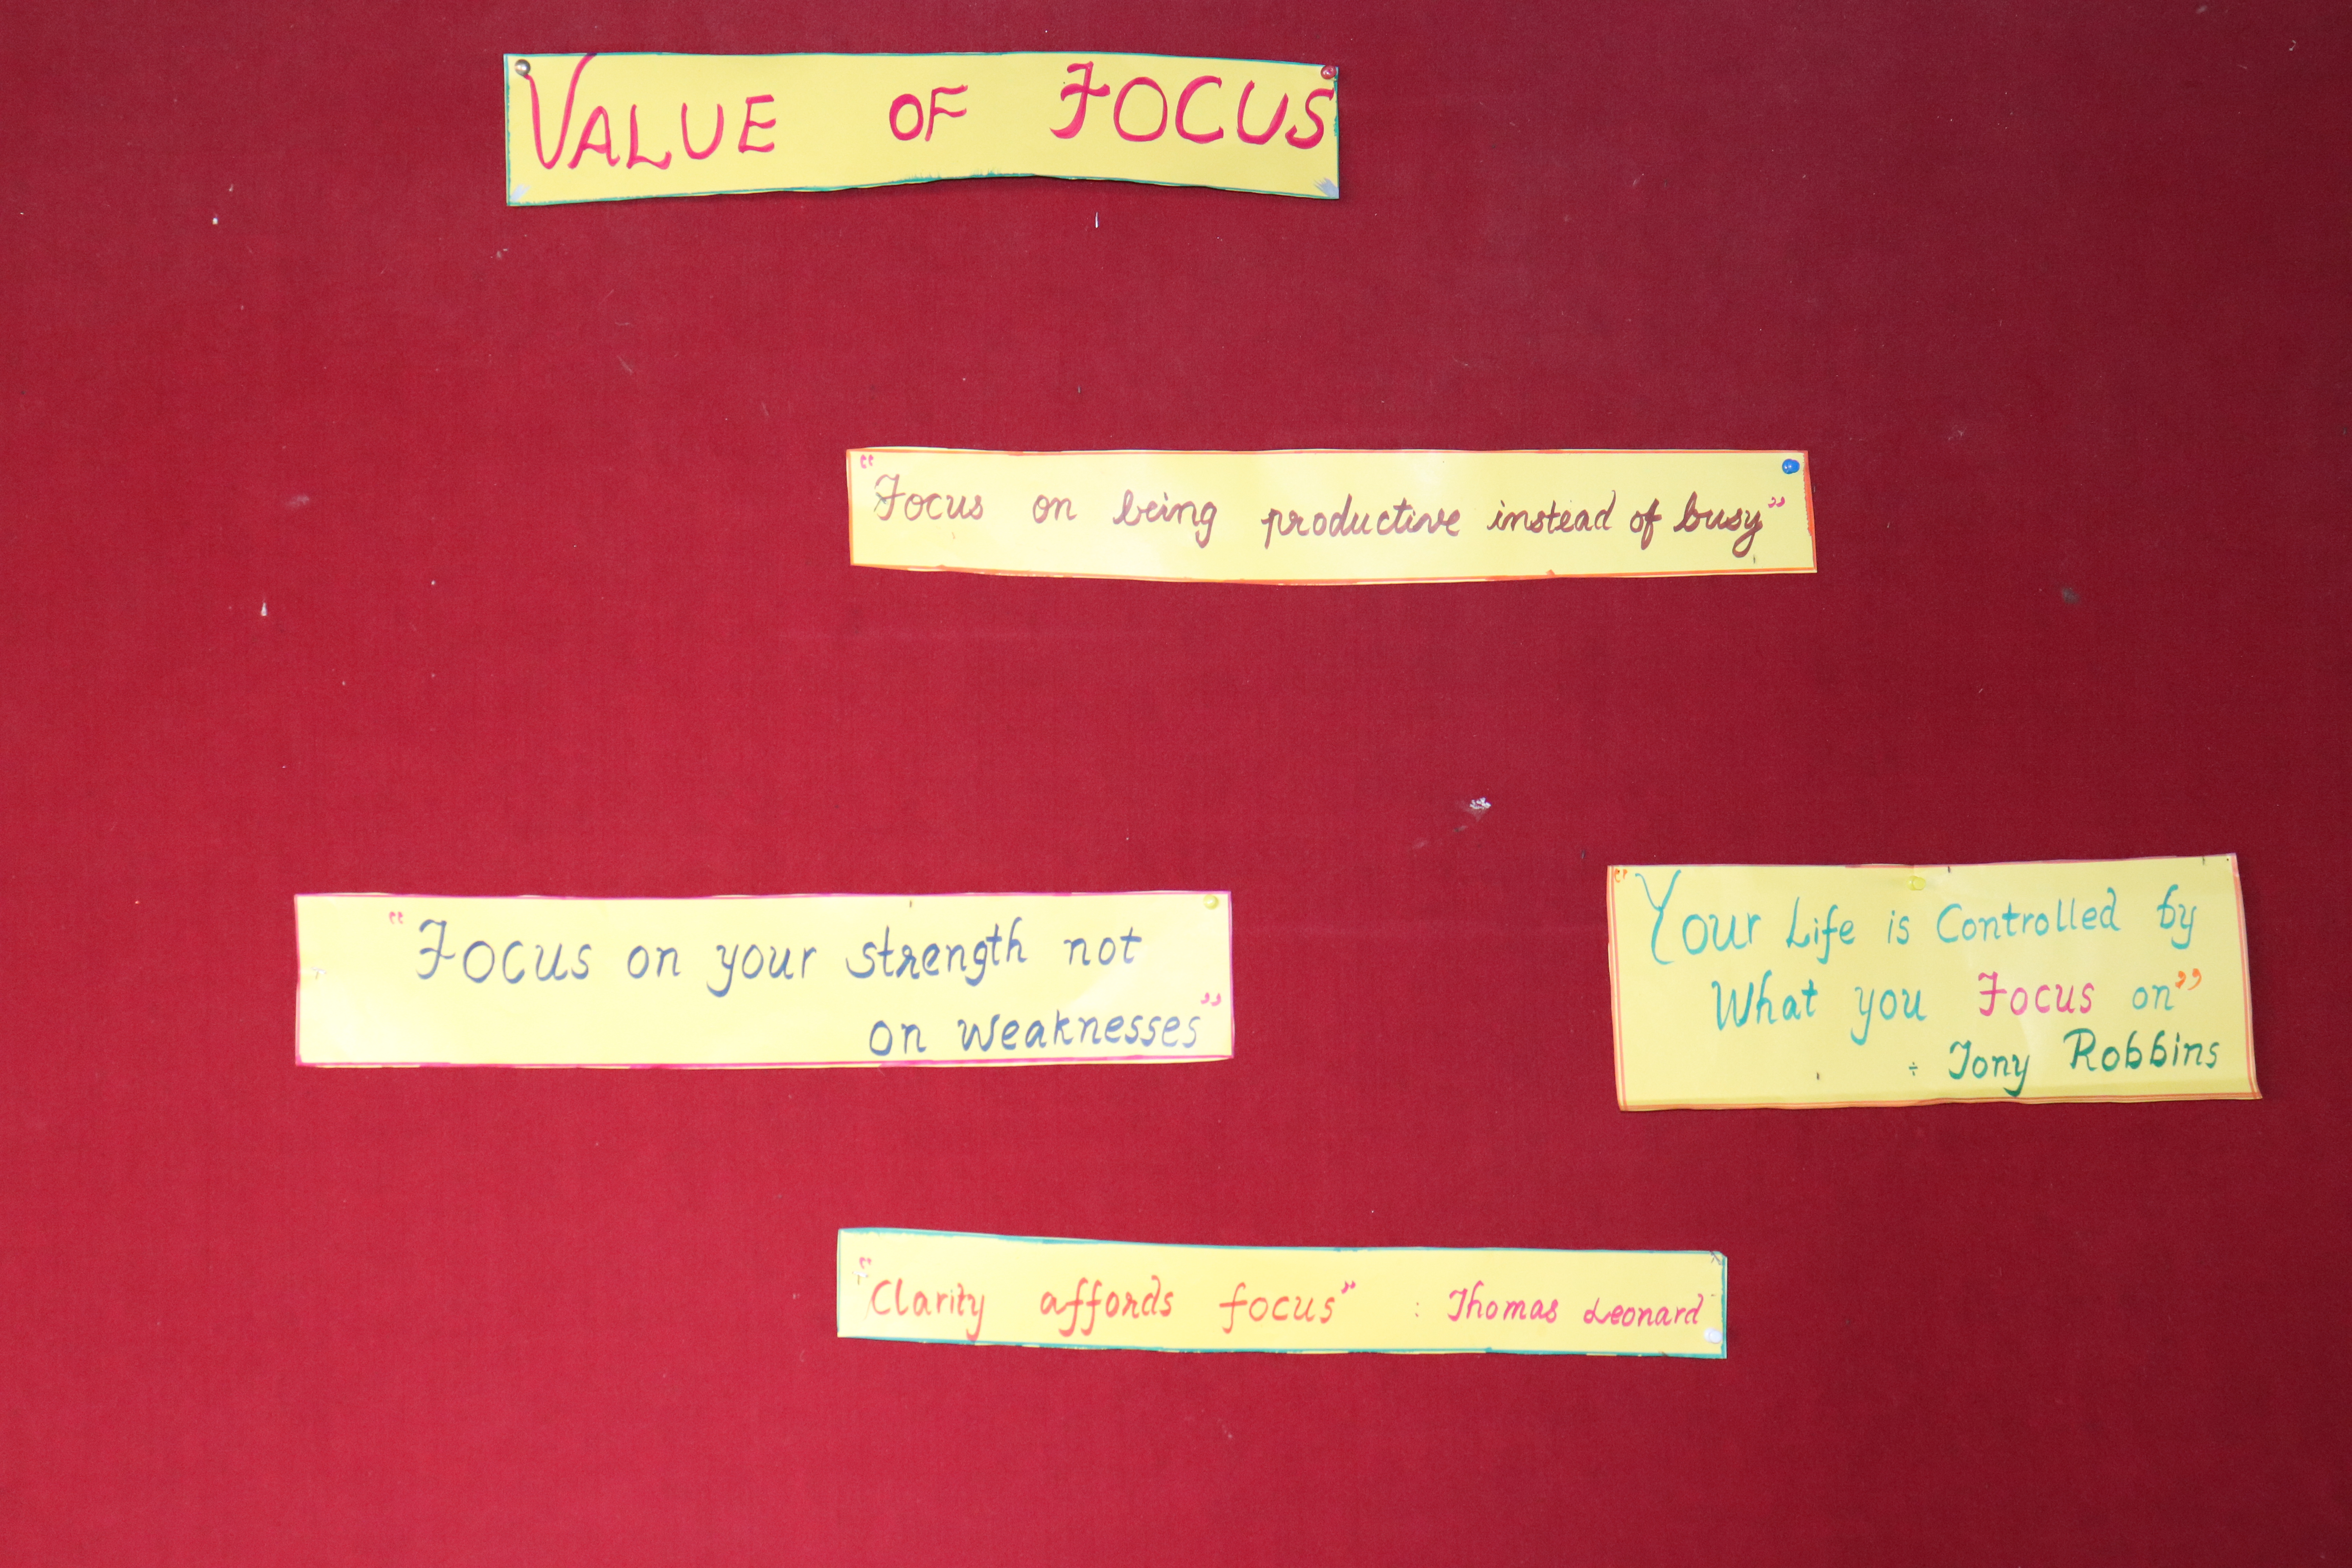 VALUE OF FOCUS
"Focus on being productive instead of busy"
"Focus on your strength not
on weaknesses"
"Your Life is Controlled by
What you Focus on"
÷ Tony Robbins
"Clarity affords focus" : Thomas Leonard